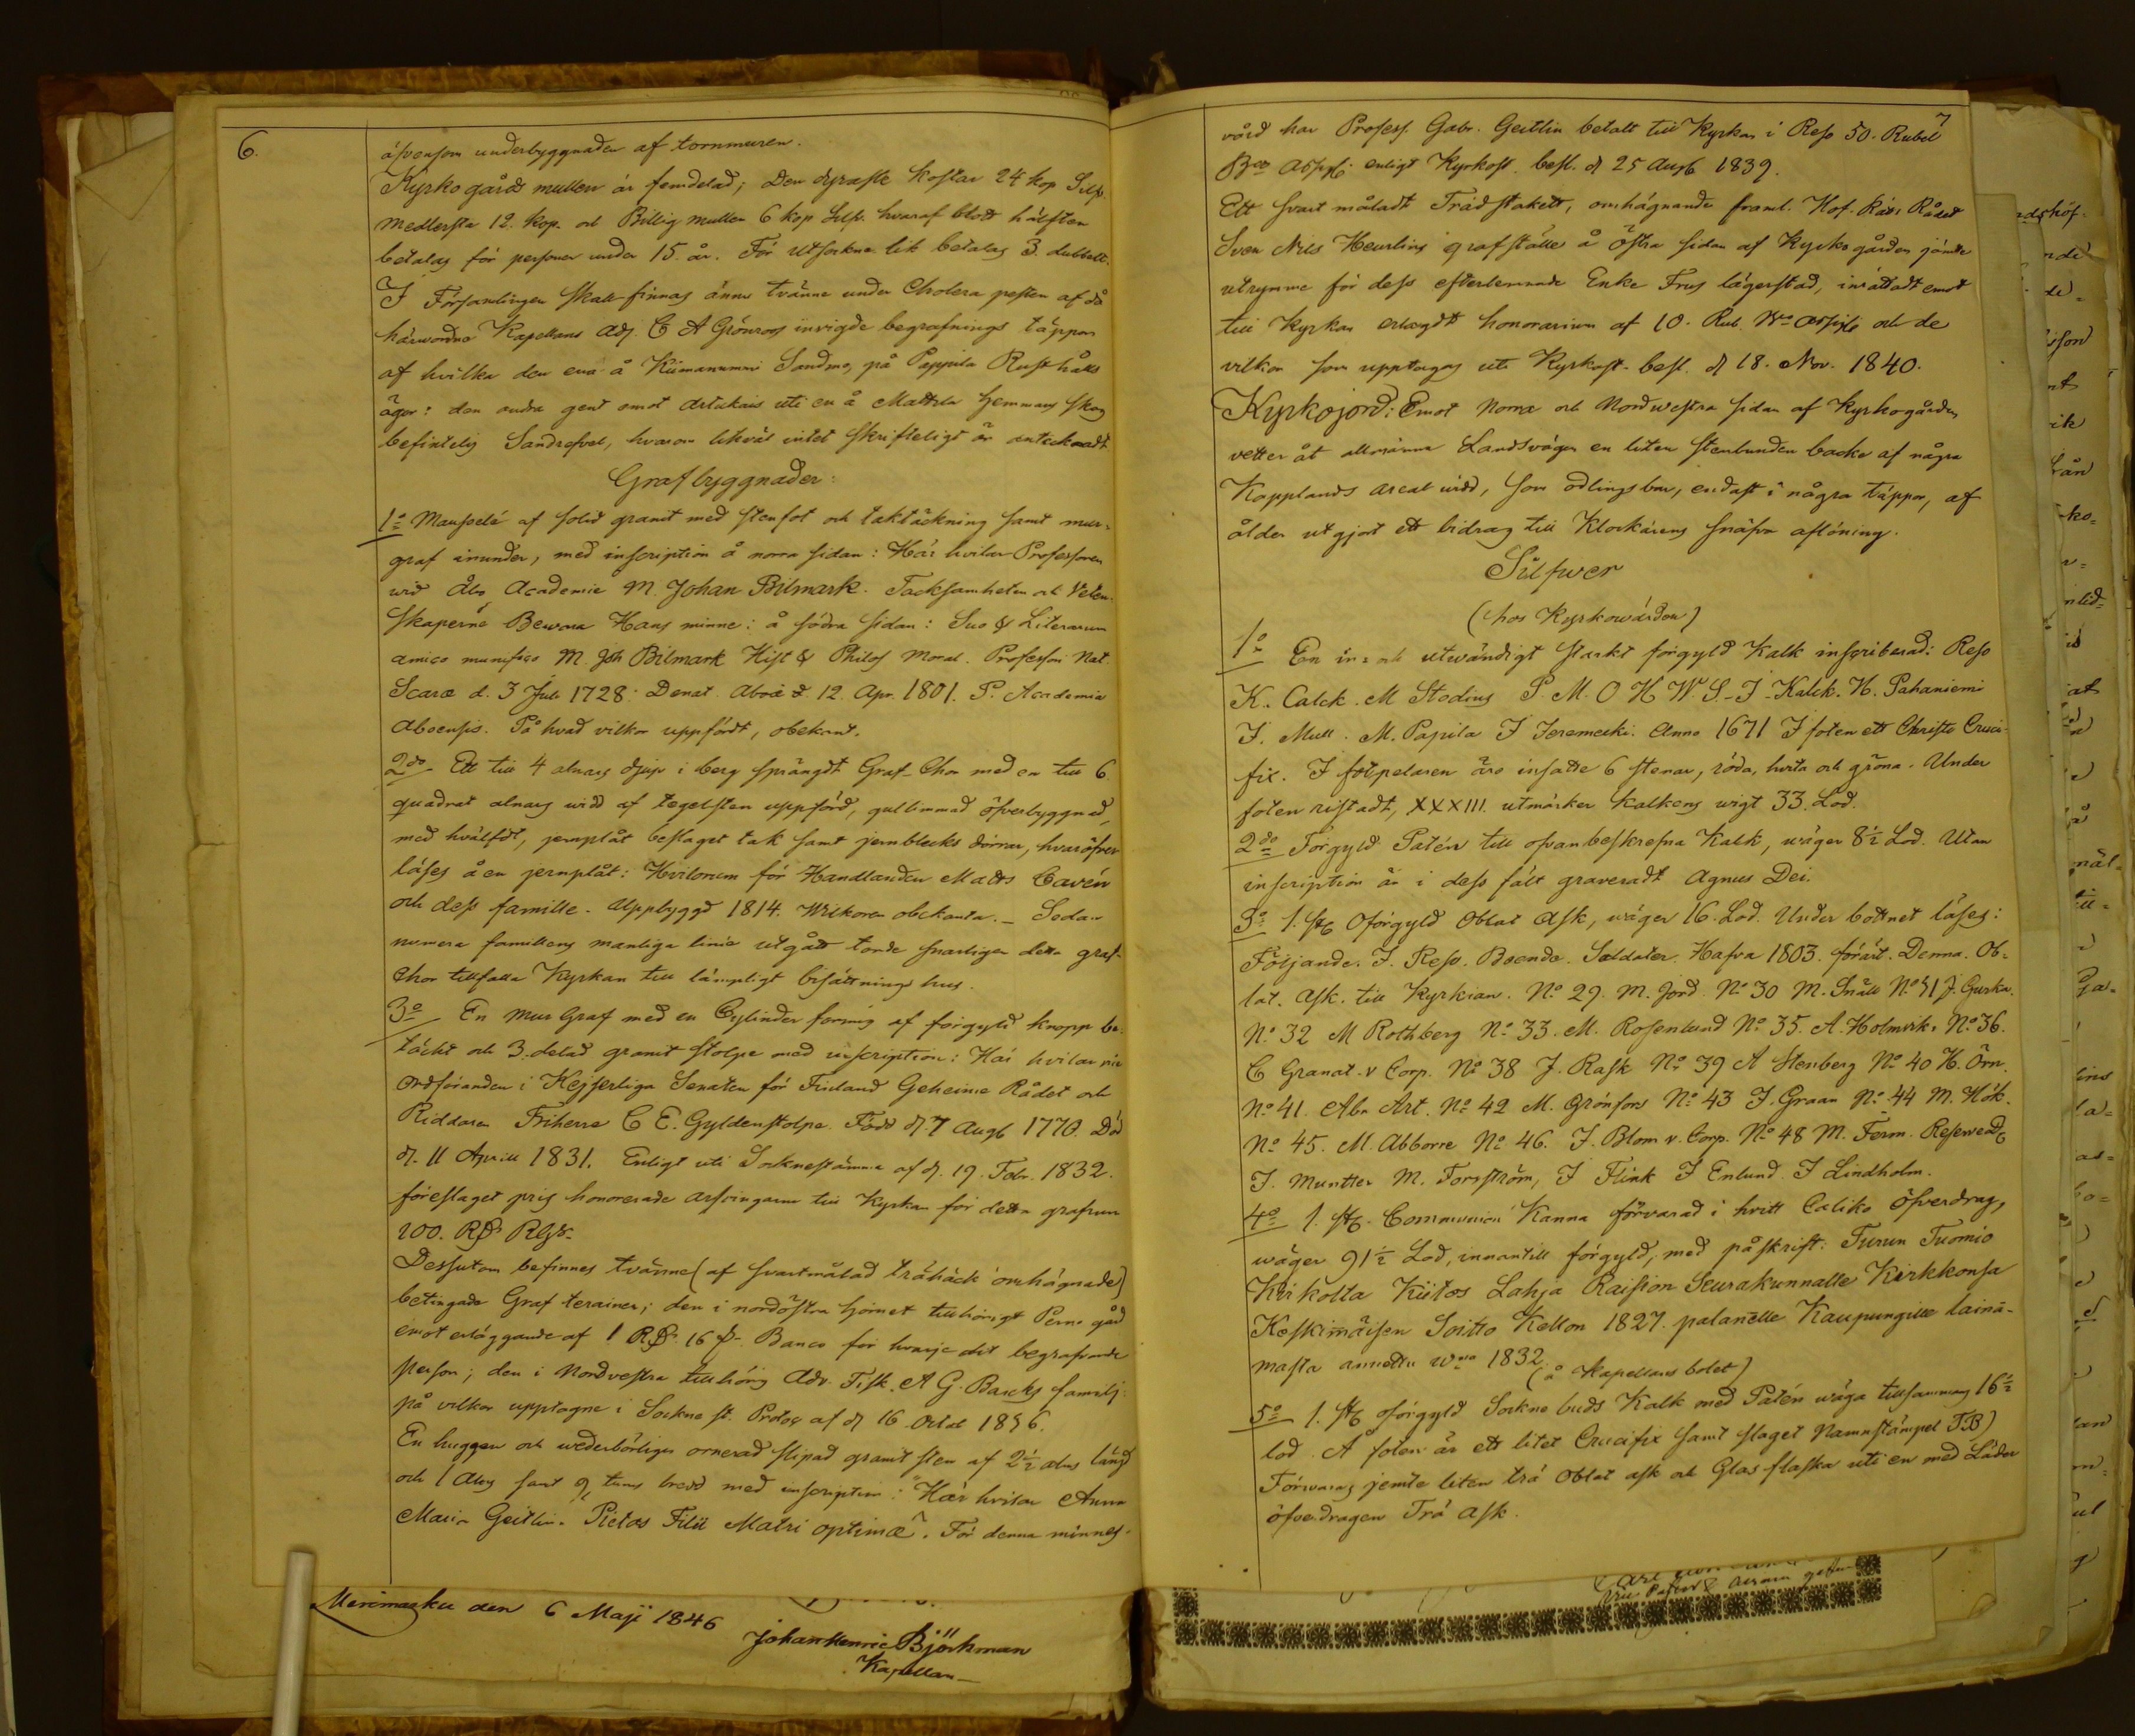 6.
äfvensom underbyggnaden af tornmuren.
Kyrkogårds mullen är femdelad; Den dyraste kostar 24 kop Silfr.
medlersta 12. kop. och Billig mullen 6 kop Silfr. hvaraf blott hälften
betalas för personer under 15 år. För Utsockne lik betalas 3. dubbelt.
I Församlingen skall finnas ännu tvänne under Cholera pesten af då
härvarande Kapellans Adj. C A Grönroos invigde begrafnings täppor
af hvilka den ena å Kiimanummi Sandmo, på Pappila Rusthålls
ägor: den andra gent emot Artukais uti en å Mattila hemmans skog
befintelig Sandrefvel, hvarom likväl intet skrifteligt är antecknadt
Grafbyggnader:
1o Mausolé af solid granit med stenfot och taktäckning samt mur-
graf inunder, med inscription å norra sidan: Här hvilar Professoren
wid Åbo Academie M. Johan Bilmark. Tacksamheten och Veten-
skaperne Bewara Hans minne: å södra sidan: Suo & Literarum
amico munifico M. Joh Bilmark Hist & Philos Moral. Professori Nat.
Scaræ d. 3 Jul 1728. Denat. Aboæ d. 12. Apr. 1801. P. Academia
Aboensis. På hvad vilkor uppfördt, obekant.
2do Ett till 4 alnars djup i berg sprängdt Graf-Chor med en till 6
quadrat alnars widd af tegelsten uppförd, gullimmad öfverbyggnad,
med hvälfdt, jernplåt beslaget tak samt jernblecks dörrar, hvaröfver
läses å en jernplåt: Hvilorum för Handlanden Matts Cavén
och dess famille. Uppbyggd 1814. Wilkoren obekanta. – Sedan
numera familiens manliga linie utgått torde snarligen detta graf-
chor tillfalla Kyrkan till lämpligt bisättnings hus.
3o En Mur Graf med en Cylinder formig af förgyld knopp be-
täckt och 3. delad granit stolpe med inscription: Här hvilar
Ordföranden i Kejserliga Senaten för Finland Geheime Rådet och
Riddaren Friherre C E. Gyldenstolpe. Född d. 7 Aug 1770. Död
d. 11 Aprill 1831. Enligt uti Socknestämma af d. 19. Febr. 1832.
föreslaget pris honorerade arfvingarne till Kyrkan för detta grafrum
100. R
Dessutom befinnes tvänne (af svartmålad trähäck omhägnade)
betingade Graf terainer; den i nordöstra hörnet tillhörigt Perno gård
emot erläggande af 1 R 16 Banco för hvarje det begrafvande
person; den i Nordvestra tillhörig Adv. Fisk. A G. Barcks familj:
på vilkor upptagne i Sockne st. Protoc af d 16 Octob 1836.
En huggen och wederbörligen ornerad slipad granit sten af 2½ alns längd
och 1 Aln samt 9, tums bredd med inscription: "Här hvilar Anna
Maria Geitlin. Pietas Filii Matri optimæ". För denna minnes-
Merimasku den 6 Maji 1846
Johan Henric Björkman
Kapellan
7
vård har Profess. Gabr. Geitlin betalt till Kyrkan i Reso 50. Rubel
Bco Assign. enligt Kyrkost. besl. d 25 Aug 1839.
Ett svart måladt Trädstakett, omhägnande framl. Hof-Rätts Rådet
Sven Nils Heurlins grafställe å östra sidan af Kyrkogården jämte
utrymme för dess efterlemnade Enke Frus lägerstad, inrättadt emot
till Kyrkan erlagdt honorarium af 10. Rub. Bco Assign och de
vilkor som upptagas uti Kyrkost. besl. d 18. Nov. 1840.
Kyrkojord: Emot Norra och Nordwestra sidan af Kyrkogården
vetter åt allmänna Landsvägen en liten stenbunden backe af några
Kapplands areal widd, som odlingsbar, endast i några täppor, af
ålder utgjort ett bidrag till Klockarens snäfva aflöning.
Silfwer
(hos Kyrkowärden)
1o En in- och utwändigt starkt förgyld Kalk inscriberad: Reso
K. Calck. M Stodius P. M. O H W. S - J - Kalck. H. Pahaniemi
J. Mull. M. Papila J Ieremecki. Anno 1671 I foten ett Christi Cruci-
fix. I fotpelaren äro insatte 6 stenar, röda, hvita och gröna. Under
foten ristadt, XXXIII. utmärker Kalkens wigt 33. Lod.
2do Förgyld Patén till ofvanbeskrefna Kalk, wäger 8½ Lod. Utan
inscription är i dess fält graveradt Agnus Dei.
3o 1. st Oförgyld Oblat Ask, wäger 16. Lod. Under bottnet läses:
Följande. I. Reso. Boende. Saldater. Hafva 1803. förärt. Denna. Ob-
lat. Ask. till Kyrkian. No 29. M. Jord No 30 M. Snäll No 31 J. Gurka.
No 32 M Rothberg No 33. M. Rosenlund No 35. A. Holmvik. No 36.
C Granat. v Corp. No 38 J. Rask No 39 A Stenberg No 40 H. Örn.
No 41. Abr. Art. No 42 M. Grönfors No 43 J. Graan No 44 M. Hök.
No 45. M. Abborre No 46. J. Blom v. Corp. No 48 M. Ferm. Reserverade
J. Muntter M. Forsström, J Flink J Enlund. J Lindholm.
4o 1. st. Communion Kanna förvarad i hvitt Caliko öfverdrag,
wäger 91½ Lod, innantill förgyld, med påskrift: Turun Tuomio
Kirkolta Kiitos Lahja Raision Seurakunnalle Kirkkonsa
Keskimäisen Soitto Kellon 1827. palanelle Kaupungille laina-
masta annettu wna 1832.
(å Kapellans bolet)
5o 1. st oförgyld Sockne buds Kalk med Patén wäga tillsammans 16½
lod. Å foten är ett litet Crucifix samt slaget Namnstämpel TB)
Förwaras jemte liten trä Oblat ask och Glas flaska uti en med Läder
öfverdragen Trä Ask.